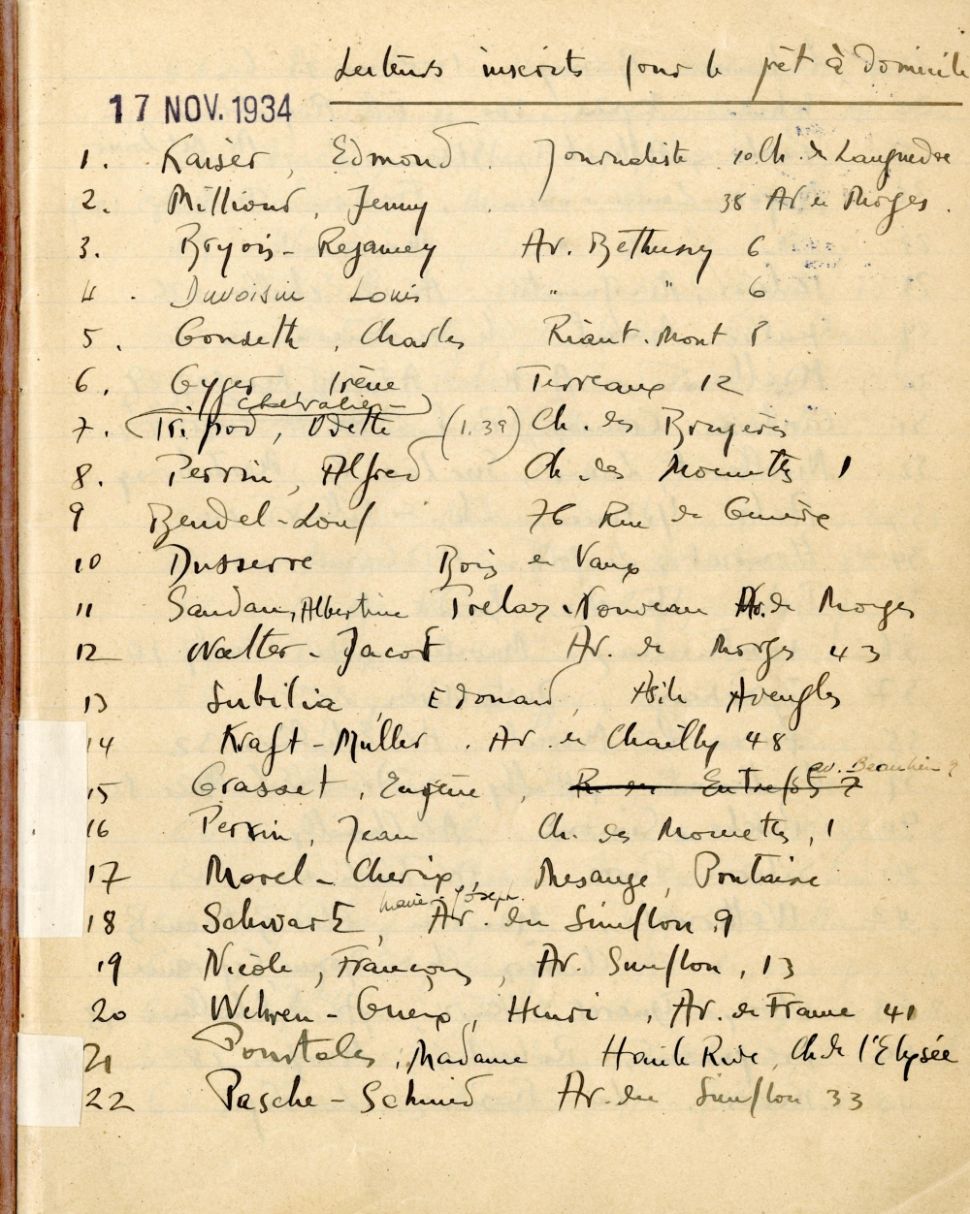 Lecteurs inscrits pour le prêt à domicile
17 NOV. 1934
1. Kaiser, Edmond Journaliste 10 Ch. de Languedoc
2. Millioud, Jenny. 38 Av. de Morges.
3. Bryois-Regamey Av. Béthusy 6
4. Duvoisin Louis " " 6
5. Gonseth, Charles Riant-Mont 8
6. Gyger, Irène Terreaux 12
(Chevalier-)
7. Tripod, Odette (1.39) Ch. des Bruyères
8. Perrin, Alfred Ch. des Mouettes 1
9 Bendel- 76 Rue de Genève
10 Dusserre Bois de Vaux
11 Saudan, Albertine Trelaz Nouveau Av. de Morges
12 Walter-Jacot Av. de Morges 43
13 Subilia, Edouard, Asile Aveugles
14 Kraft-Müller. Av. de Chailly 48
av. Beaulieu 9
15 Grasset, Eugène, R. des Entrepôts 7
16 Perrin, Jean Ch. des Mouettes, 1
17 Morel-Cherix, Mésange, Pontaise
Marie-Joseph.
18 Schwartz, Av. du Simplon 9
19 Nicole, François, Av. Simplon, 13
20 Wehren-Guex, Henri, Av. de France 41
21 Pourtalès, Madame Haute Rive, Ch. de l'Elysée
22 Pasche-Schmid Av. du Simplon 33